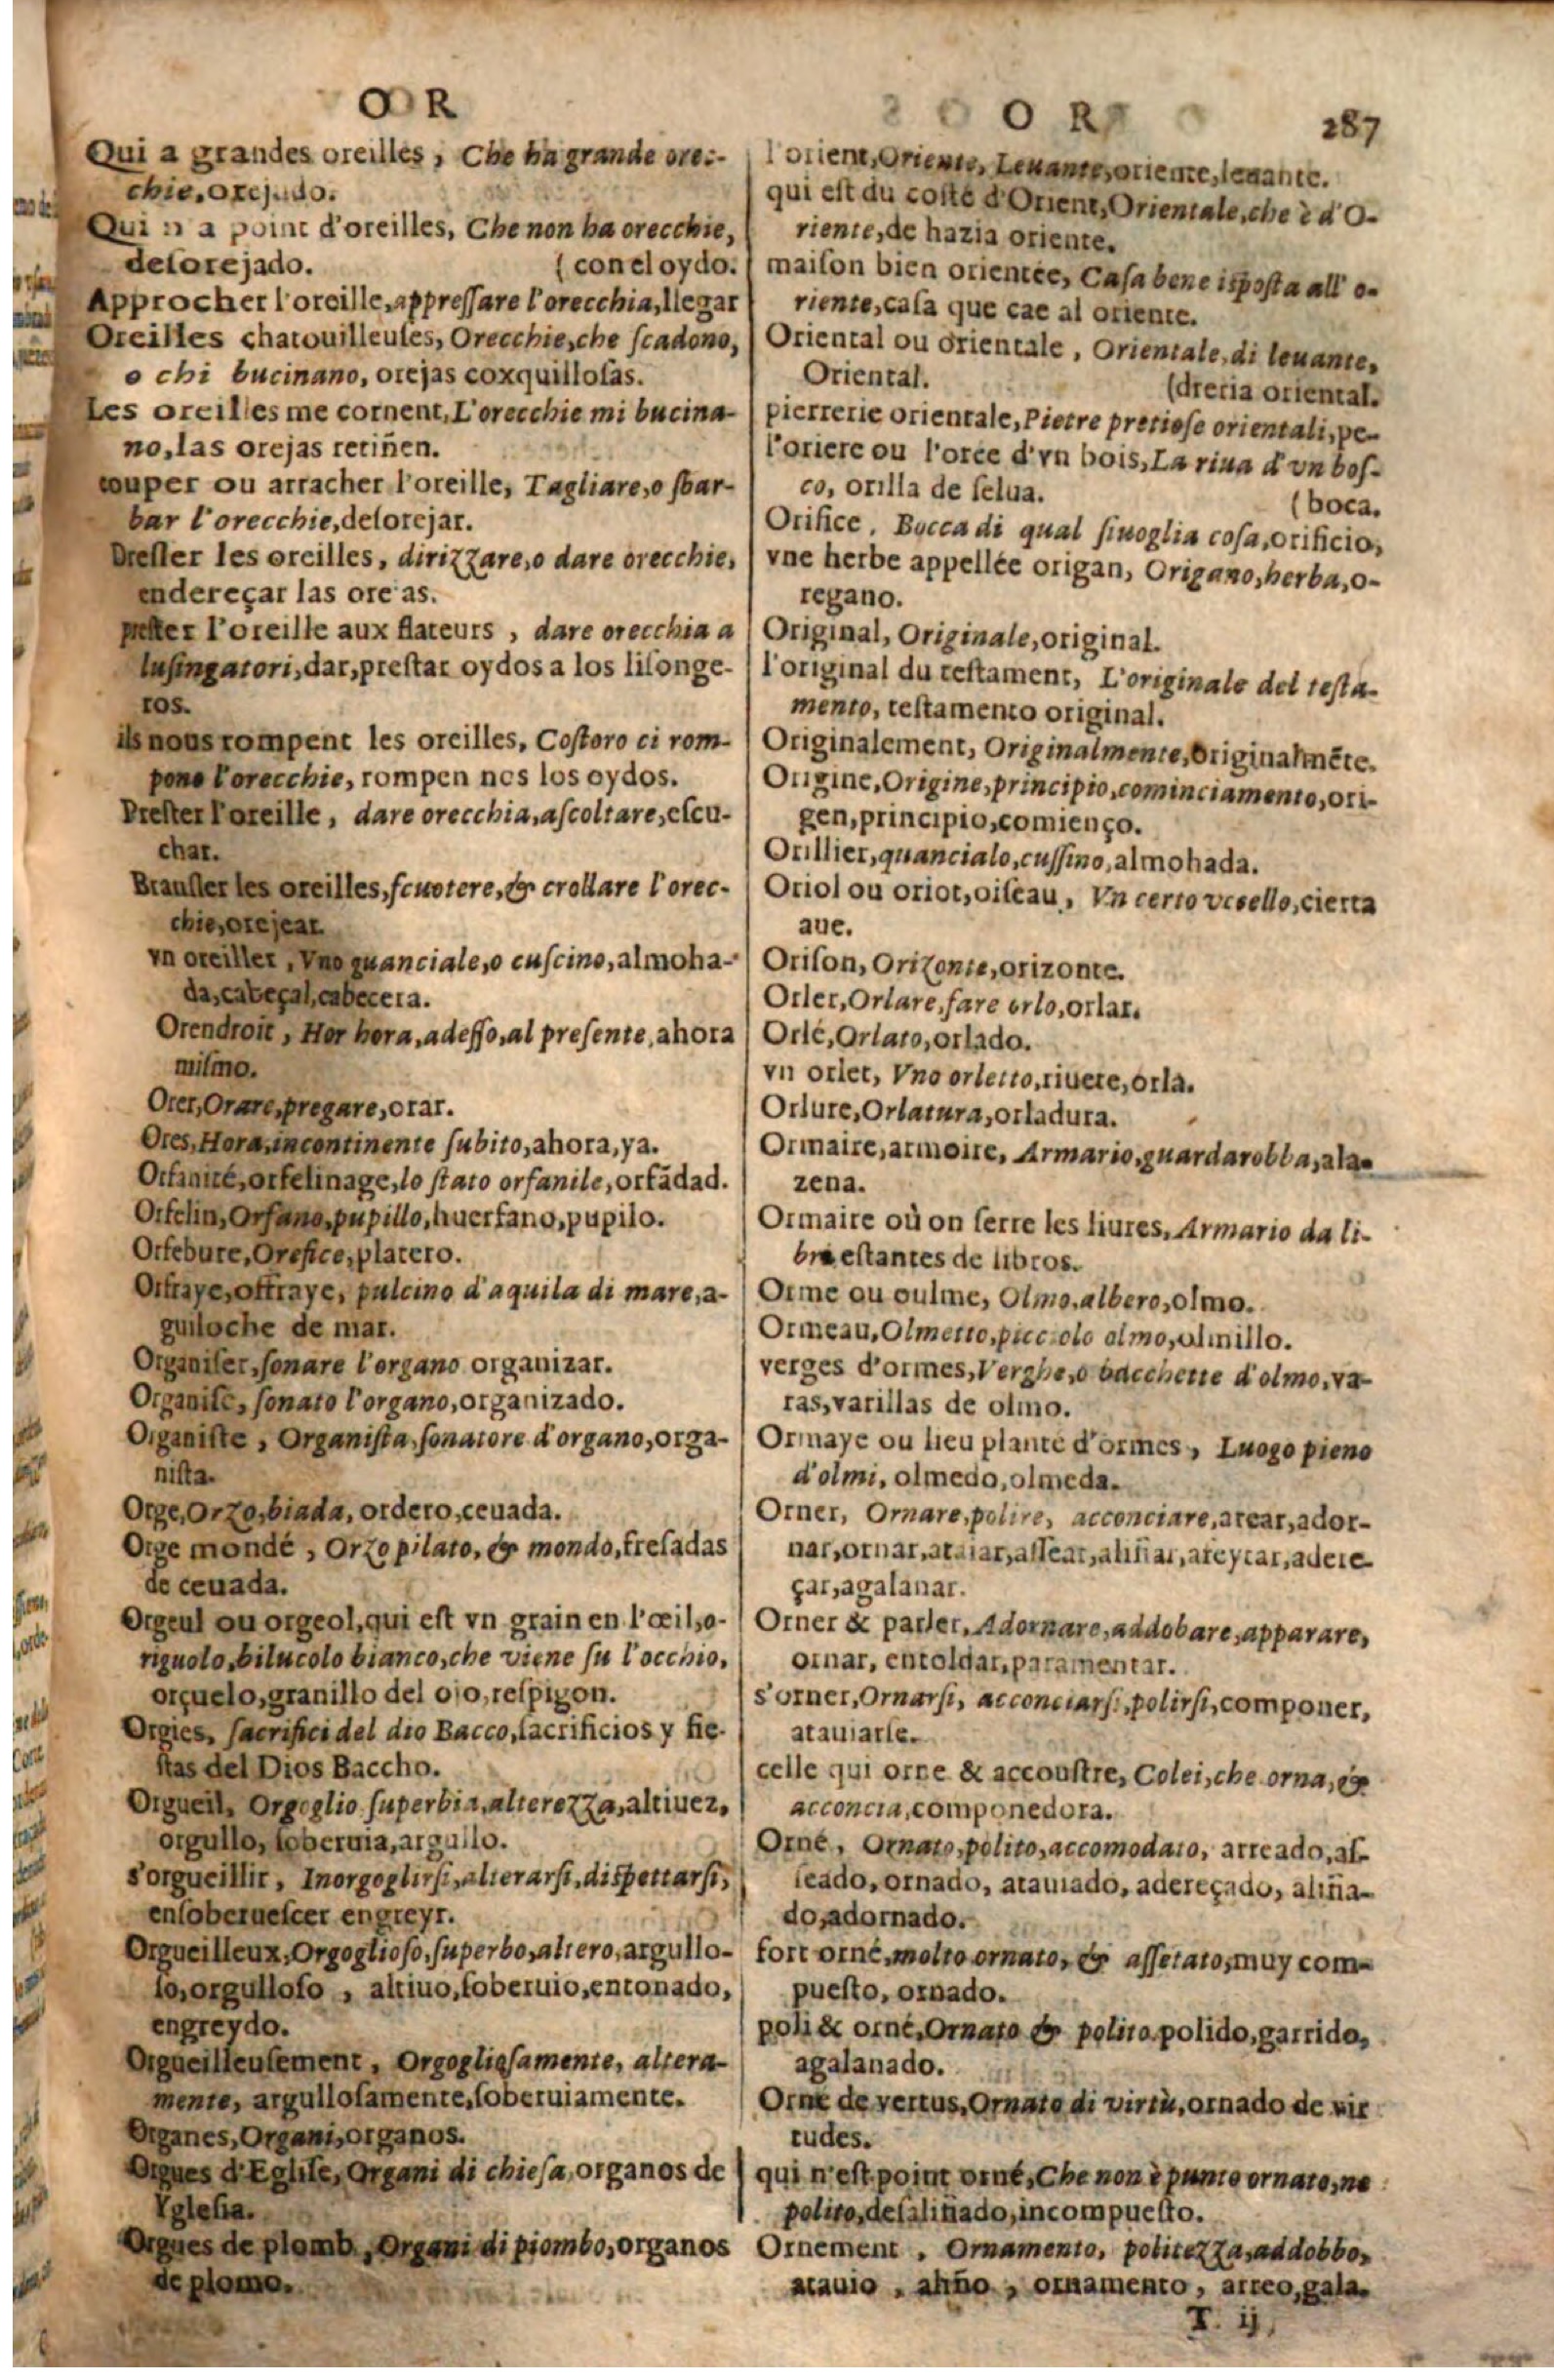 O R
Qui a grandes oreilles, Che ha grande orec-
chie, orejudo.
Qui n'a point d'oreilles, Che non ha orecchie,
deſorejado. (con el oydo.
Approcher l'oreille, appreſſare l'orecchia, llegar
Oreilles chatouilleuſes, Orecchie, che ſcadono,
o chi bucinano, orejas coxquilloſas.
Les oreilles me cornent, L'orecchie mi bucina-
no, las orejas retiñen.
couper ou arracher l'oreille, Tagliare, o ſbar-
bar l'orecchie, deſorejar.
Dreſſer les oreilles, dirizzare, o dare orecchie,
endereçar las ore as.
preſter l'oreille aux flateurs, dare orecchia a
luſingatori, dar, preſtar oydos a los liſonge-
ros.
ils nous rompent les oreilles, Coſtoro ci rom-
pono l'orecchie, rompen nos los oydos.
Preſter l'oreille, dare orecchia, aſcoltare, eſcu-
char.
Branſler les oreilles, ſcuotere, & crollare l'orec-
chie, orejear.
vn oreiller, Vno guanciale, o cuſcino, almoha-
da, cabeçal, cabecera.
Orendroit, Hor hora, adeſſo, al preſente, ahora
miſmo.
Orer, Orare, pregare, orar.
Ores, Hora, incontinente ſubito, ahora, ya.
Orfanité, orfelinage, lo ſtato orfanile, orfãdad.
Orfelin, Orfano, pupillo, huerfano, pupilo.
Orfebure, Orefice, platero.
Orfraye, offraye, pulcino d'aquila di mare, a-
guiloche de mar.
Organiſer, ſonare l'organo organizar.
Organiſé, ſonato l'organo, organizado.
Organiſte, Organiſta, ſonatore d'organo, orga-
niſta.
Orge, Orzo, biada, ordero, ceuada.
Orge mondé, Orzo pilato, & mondo, freſadas
de ceuada.
Orgeul ou orgeol, qui eſt vn grain en l'œil, o-
riguolo, bilucolo bianco, che viene ſu l'occhio,
orçuelo, granillo del ojo, reſpigon.
Orgies, ſacrifici del dio Bacco, ſacrificios y fie-
ſtas del Dios Baccho.
Orgueil, Orgoglio ſuperbia, alterezza, altiuez,
orgullo, ſoberuia, argullo.
s'orgueillir, Inorgoglirſi, alterarſi, diſpettarſi,
enſoberueſcer engreyr.
Orgueilleux, Orgoglioſo, ſuperbo, altero, argullo-
ſo, orgulloſo, altiuo, ſoberuio, entonado,
engreydo.
Orgueilleuſement, Orgoglioſamente, altera-
mente, argulloſamente, ſoberuiamente.
Organes, Organi, organos.
Orgues d'Egliſe, Organi di chieſa, organos de
Ygleſia.
Orgues de plomb, Organi di piombo, organos
de plomo.
O R 287
l'orient, Oriente, Leuante, oriente, leuante.
qui eſt du coſté d'Orient, Orientale, che è d'O-
riente, de hazia oriente.
maiſon bien orientée, Caſa bene iſpoſta all' o-
riente, caſa que cae al oriente.
Oriental ou orientale, Orientale, di leuante,
Oriental. (dreria oriental.
pierrerie orientale, Pietre pretioſe orientali, pe-
l'oriere ou l'orée d'vn bois, La riua d'vn boſ-
co, orilla de ſelua. (boca.
Orifice, Bocca di qual ſiuoglia coſa, orificio,
vne herbe appellée origan, Origano, herba, o-
regano.
Original, Originale, original.
l'original du teſtament, L'originale del teſta-
mento, teſtamento original.
Originalement, Originalmente, originalmẽte.
Origine, Origine, principio, cominciamento, ori-
gen, principio, comienço.
Orillier, quancialo, cuſſino, almohada.
Oriol ou oriot, oiſeau, Vn certo vcello, cierta
aue.
Oriſon, Orizonte, orizonte.
Orler, Orlare, fare orlo, orlar.
Orlé, Orlato, orlado.
vn orlet, Vno orletto, riuete, orla.
Orlure, Orlatura, orladura.
Ormaire, armoire, Armario, guardarobba, ala-
zena.
Ormaire où on ſerre les liures, Armario da li-
bri, eſtantes de libros.
Orme ou oulme, Olmo, albero, olmo.
Ormeau, Olmetto, picciolo olmo, olmillo.
verges d'ormes, Verghe, o bacchette d'olmo, va-
ras, varillas de olmo.
Ormaye ou lieu planté d'ormes, Luogo pieno
d'olmi, olmedo, olmeda.
Orner, Ornare, polire, acconciare, arear, ador-
nar, ornar, atauiar, aſſear, aliñar, afeytar, adere-
çar, agalanar.
Orner & parler, Adornare, addobare, apparare,
ornar, entoldar, paramentar.
s'orner, Ornarſi, acconciarſi, polirſi, componer,
atauiarſe.
celle qui orne & accouſtre, Colei, che orna, &
acconcia, componedora.
Orné, Ornato, polito, accomodato, arreado, aſ-
ſeado, ornado, atauiado, adereçado, aliña-
do, adornado.
fort orné, molto ornato, & aſſetato, muy com-
pueſto, ornado.
poli & orné, Ornato & polito polido, garrido,
agalanado.
Orné de vertus, Ornato di virtù, ornado de vir
tudes.
qui n'eſt point orné, Che non è punto ornato, ne
polito, deſaliñado, incompueſto.
Ornement, Ornamento, politezza, addobbo,
atauio, aliño, ornamento, arreo, gala.
T ij